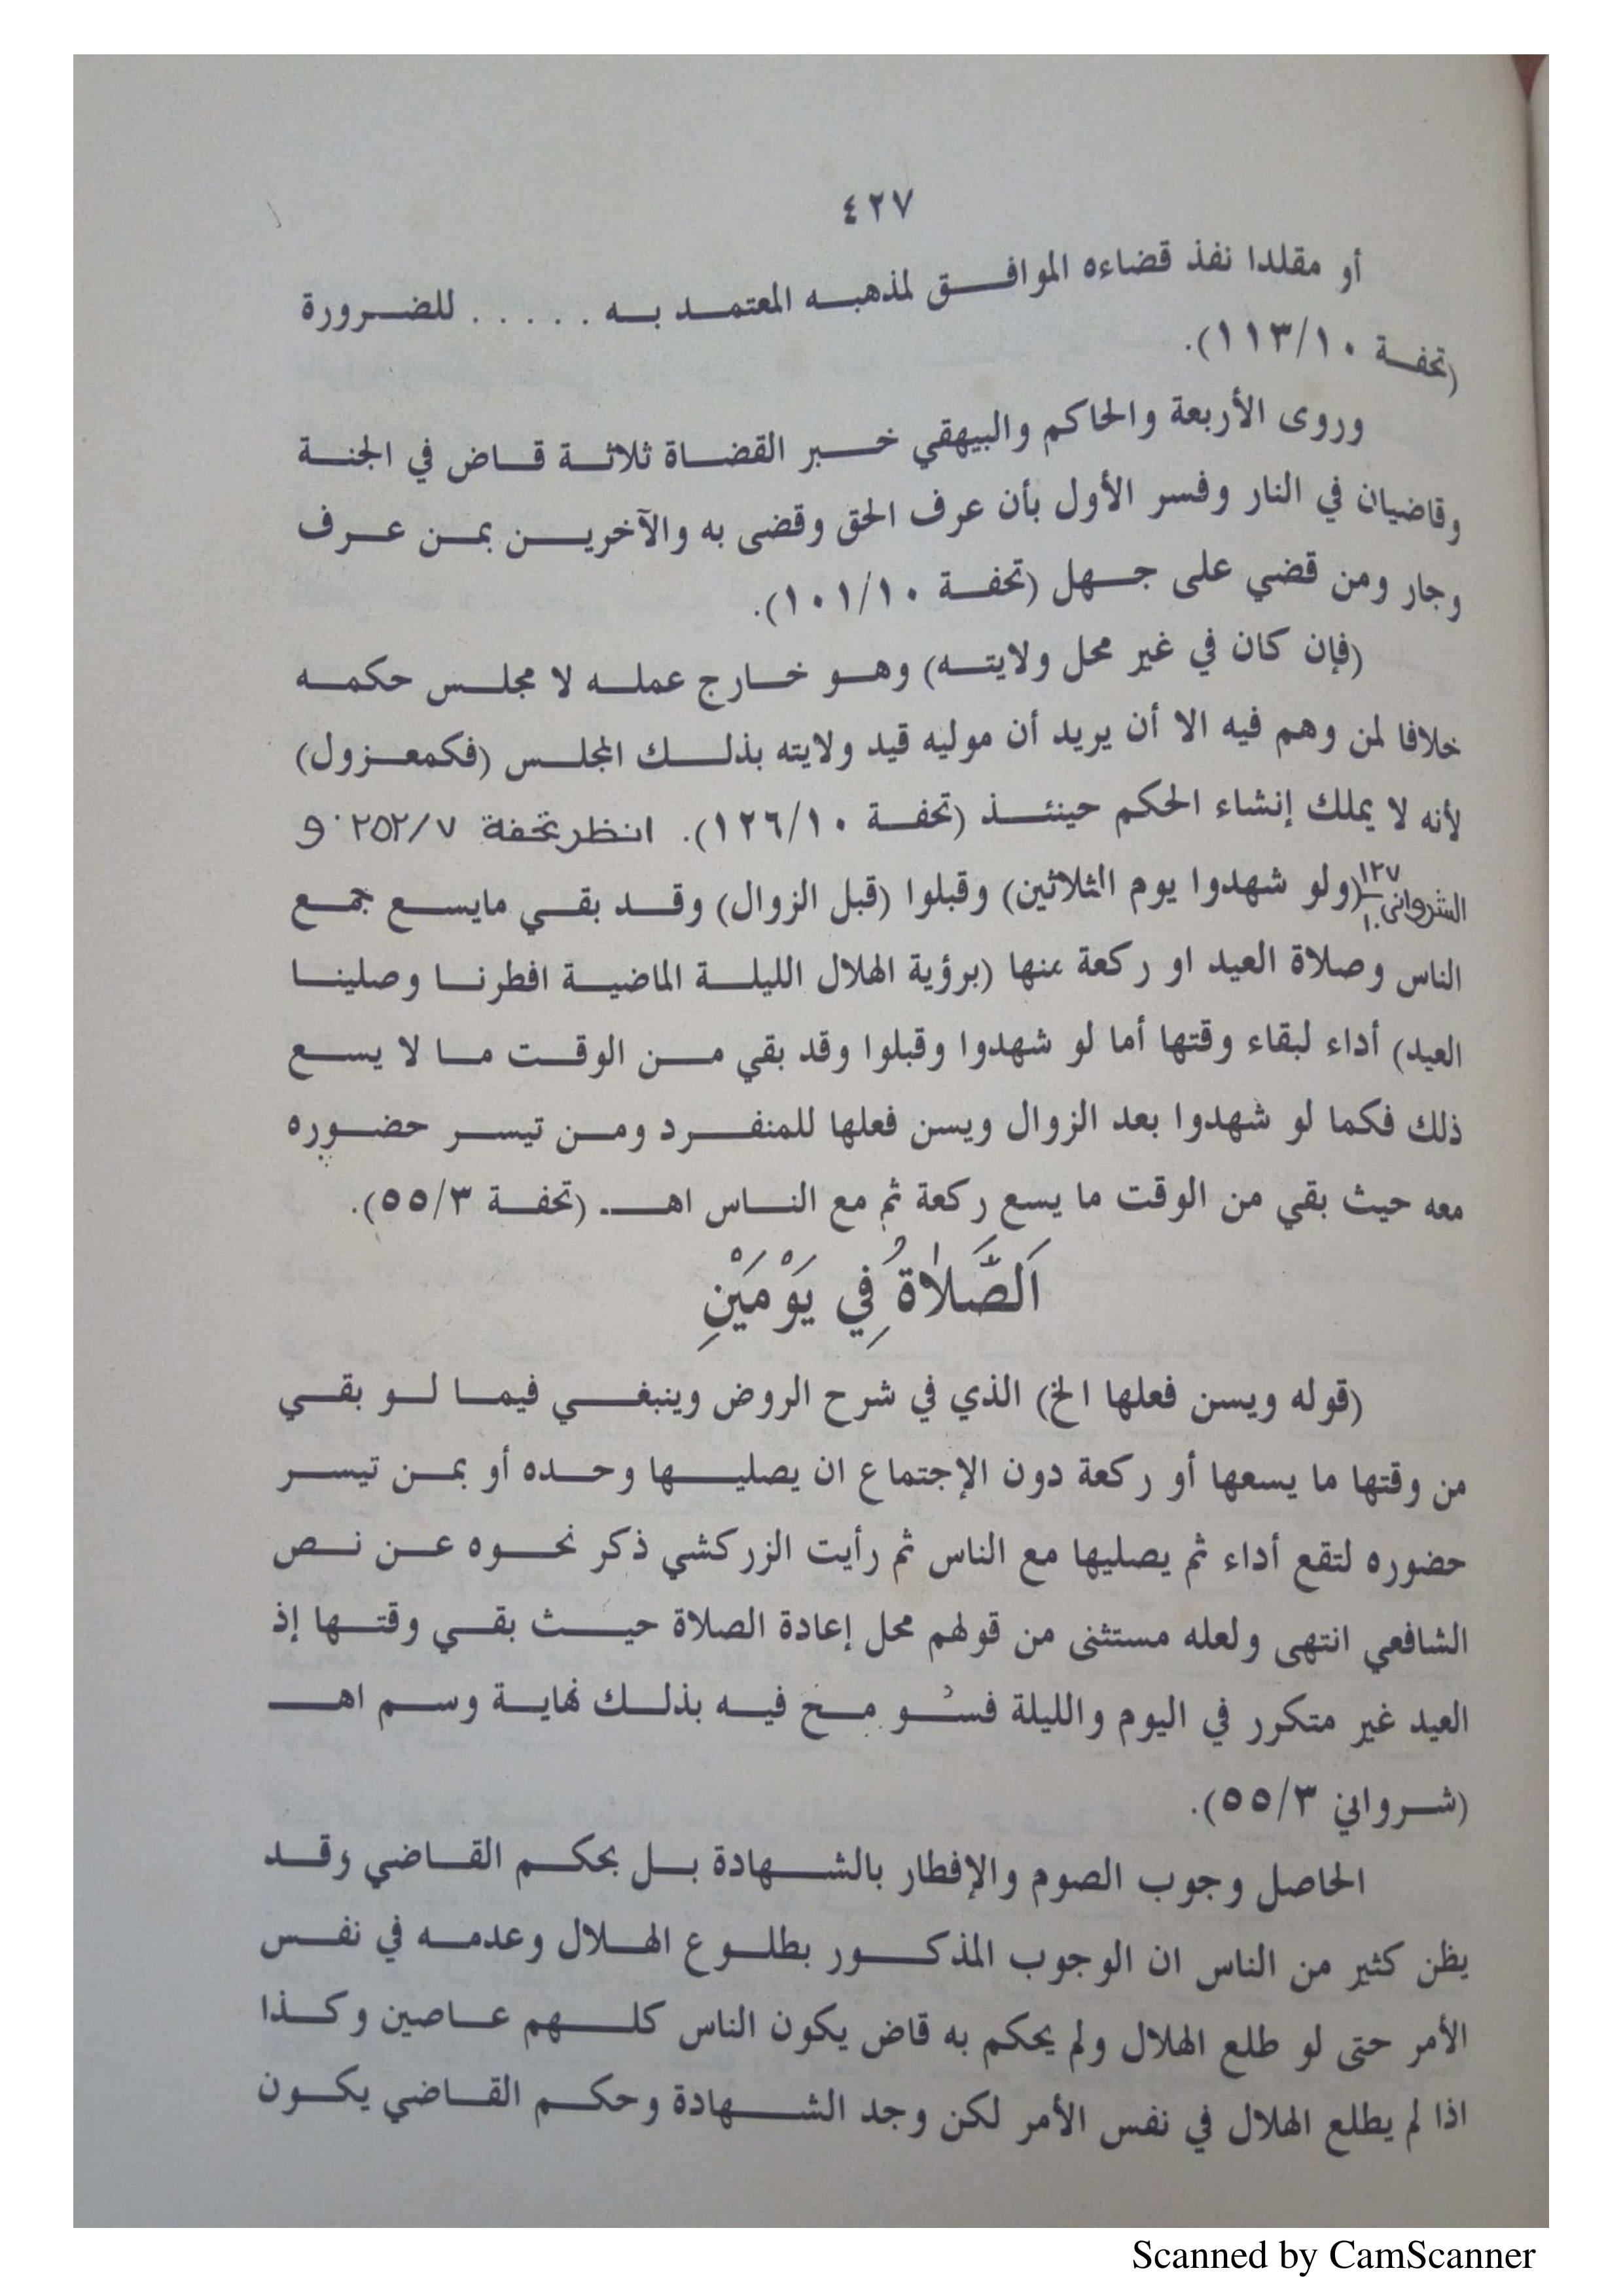 ٤٢٧
أو مقلدا نفذ قضاءه الموافق لمذهبه المعتمد به ..... للضرورة
(تحفة ١١٣/١٠).
وروى الأربعة والحاكم والبيهقي خبر القضاة ثلاثة قاض في الجنة
وقاضيان في النار وفسر الأول بأن عرف الحق وقضى به والآخرين بمن عرف
وجار ومن قضي على جهل (تحفة ١٠١/١٠).
(فإن كان في غير محل ولايته) وهو خارج عمله لا مجلس حكمه
خلافا لمن وهم فيه الا أن يريد أن موليه قيد ولايته بذلك المجلس (فكمعزول)
لأنه لا يملك إنشاء الحكم حينئذ (تحفة ١٢٦/١٠). انظر تحفة ٢٥٢/٧ و
الشروانى ١٢٧/١٠ (ولو شهدوا يوم الثلاثين) وقبلوا (قبل الزوال) وقد بقي مايسع جمع
الناس وصلاة العيد او ركعة منها (برؤية الهلال الليلة الماضية افطرنا وصلينا
العيد) أداء لبقاء وقتها أما لو شهدوا وقبلوا وقد بقي من الوقت ما لا يسع
ذلك فكما لو شهدوا بعد الزوال ويسن فعلها للمنفرد ومن تيسر حضوره
معه حيث بقي من الوقت ما يسع ركعة ثم مع الناس اهـ (تحفة ٥٥/٣).
اَلصَّلَاةُ فِي يَوْمَيْنِ
(قوله ويسن فعلها الخ) الذي في شرح الروض وينبغي فيما لو بقي
من وقتها ما يسعها أو ركعة دون الإجتماع ان يصليها وحده أو بمن تيسر
حضوره لتقع أداء ثم يصليها مع الناس ثم رأيت الزركشي ذكر نحوه عن نص
الشافعي انتهى ولعله مستثنى من قولهم محل إعادة الصلاة حيث بقي وقتها إذ
العيد غير متكرر في اليوم والليلة فسُو مح فيه بذلك نهاية وسم اهـ
(شرواني ٥٥/٣).
الحاصل وجوب الصوم والإفطار بالشهادة بل بحكم القاضي وقد
يظن كثير من الناس ان الوجوب المذكور بطلوع الهلال وعدمه في نفس
الأمر حتى لو طلع الهلال ولم يحكم به قاض يكون الناس كلهم عاصين وكذا
اذا لم يطلع الهلال في نفس الأمر لكن وجد الشهادة وحكم القاضي يكون
Scanned by CamScanner